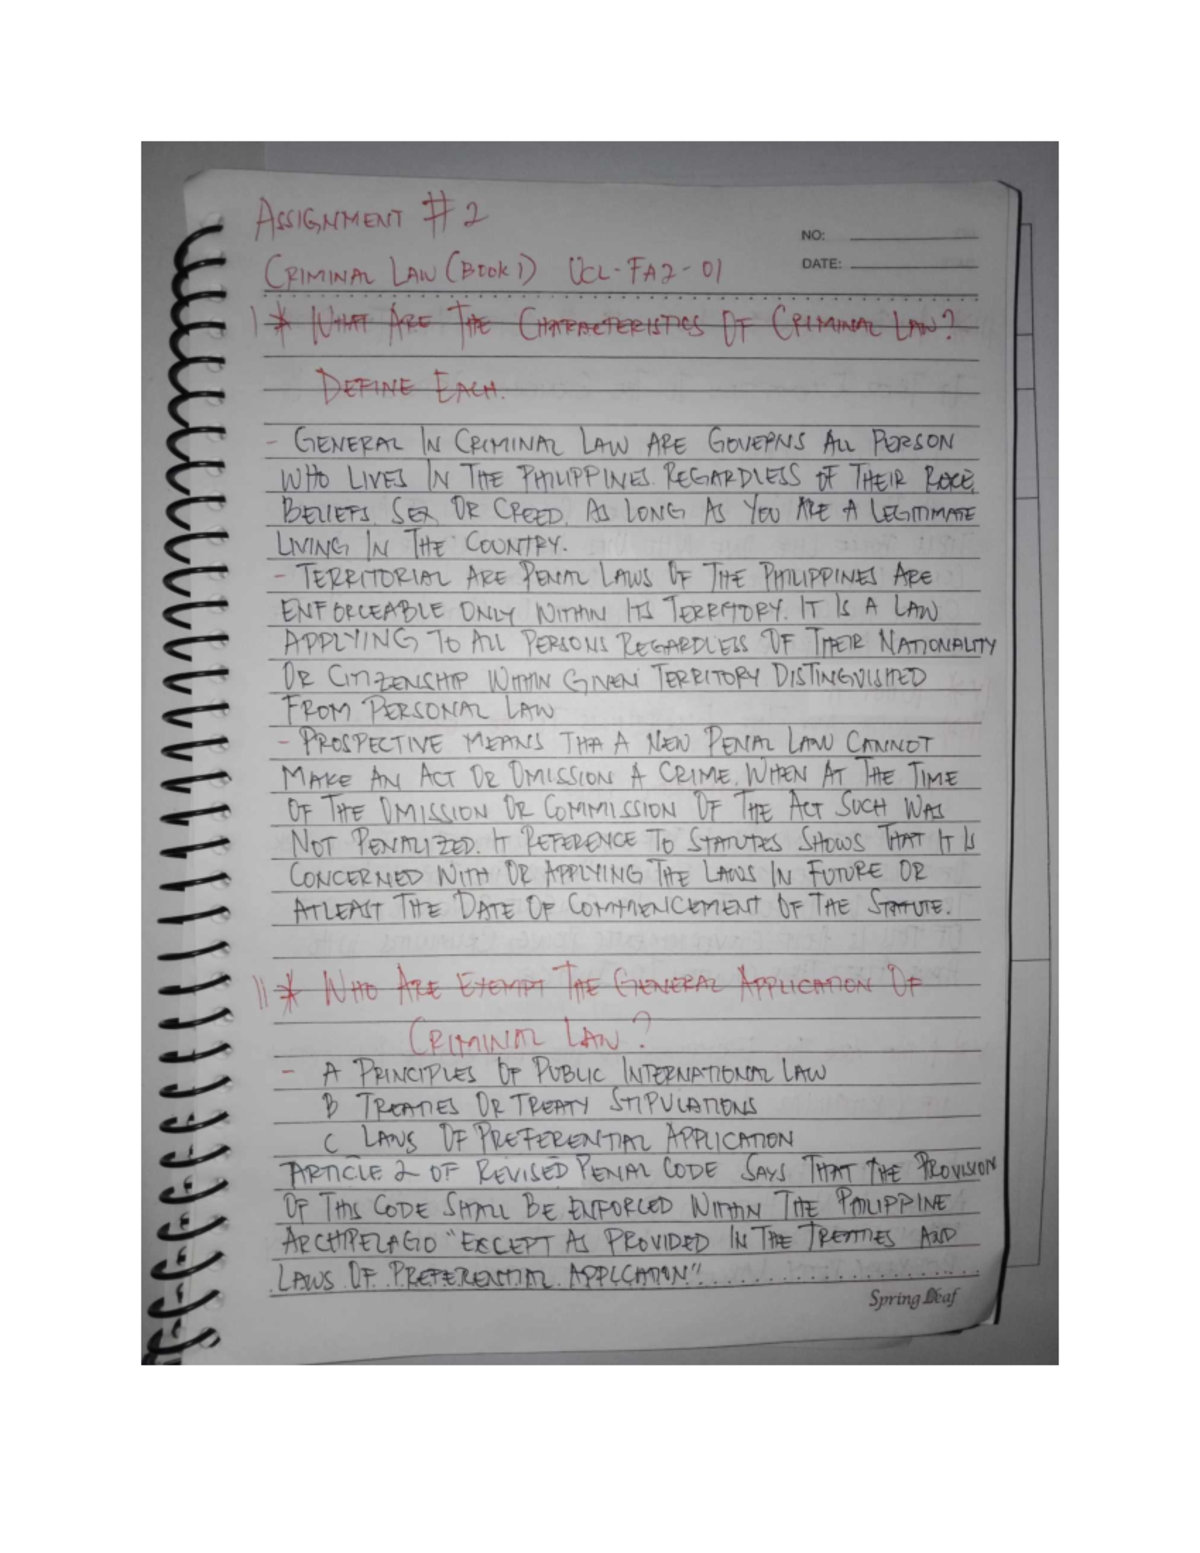 ASSIGNMENT # 2
NO:
CRIMINAL LAW (BOOK 1) UCL-FA2-01
DATE:
I * WHAT ARE THE CHARACTERISTICS OF CRIMINAL LAW?
DEFINE EACH.
- GENERAL IN CRIMINAL LAW ARE GOVERNS ALL PERSON
WHO LIVES IN THE PHILIPPINES REGARDLESS OF THEIR RACE,
BELIEFS, SEX OR CREED, AS LONG AS YOU ARE A LEGITIMATE
LIVING IN THE COUNTRY.
- TERRITORIAL ARE PENAL LAWS OF THE PHILIPPINES ARE
ENFORCEABLE ONLY WITHIN ITS TERRITORY. IT IS A LAW
APPLYING TO ALL PERSONS REGARDLESS OF THEIR NATIONALITY
OR CITIZENSHIP WITHIN GIVEN TERRITORY DISTINGUISHED
FROM PERSONAL LAW
- PROSPECTIVE MEANS THA A NEW PENAL LAW CANNOT
MAKE AN ACT OR OMISSION A CRIME, WHEN AT THE TIME
OF THE OMISSION OR COMMISSION OF THE ACT SUCH WAS
NOT PENALIZED. IT REFERENCE TO STATUTES SHOWS THAT IT IS
CONCERNED WITH OR APPLYING THE LAWS IN FUTURE OR
ATLEAST THE DATE OF COMMENCEMENT OF THE STATUTE.
II * WHO ARE EXEMPT THE GENERAL APPLICATION OF
CRIMINAL LAW?
- A PRINCIPLES OF PUBLIC INTERNATIONAL LAW
B TREATIES OR TREATY STIPULATIONS
C LAWS OF PREFERENTIAL APPLICATION
ARTICLE 2 OF REVISED PENAL CODE SAYS THAT THE PROVISION
OF THIS CODE SHALL BE ENFORCED WITHIN THE PHILIPPINE
ARCHIPELAGO "EXCEPT AS PROVIDED IN THE TREATIES AND
LAWS OF PREFERENTIAL APPLCATION"
Spring Leaf